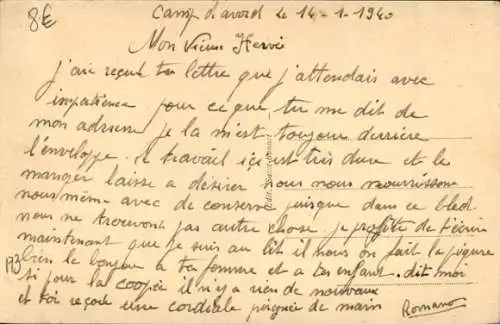 8€
Camp d'avord le 14-1-1940
Mon vieux Hervé
j'ai reçut ta lettre que j'attendais avec
impatience pour ce que tu me dit de
mon adresse je la m'est toujour derrière
l'enveloppe. il travail ici est très dure et le
manger laisse a désirer nous nous nourrissone
nous même avec de conserve puisque dans ce bled
nous ne trouvons pas autre chose. je profite de t'écrire
maintenant que je suis au lit il nous on fait la piqure
bien le bonjour a ta femme et a tes enfant. dit moi
si pour la coopée il n'y a rien de nouveaux
et toi reçoit une cordiale poignée de main
Romano